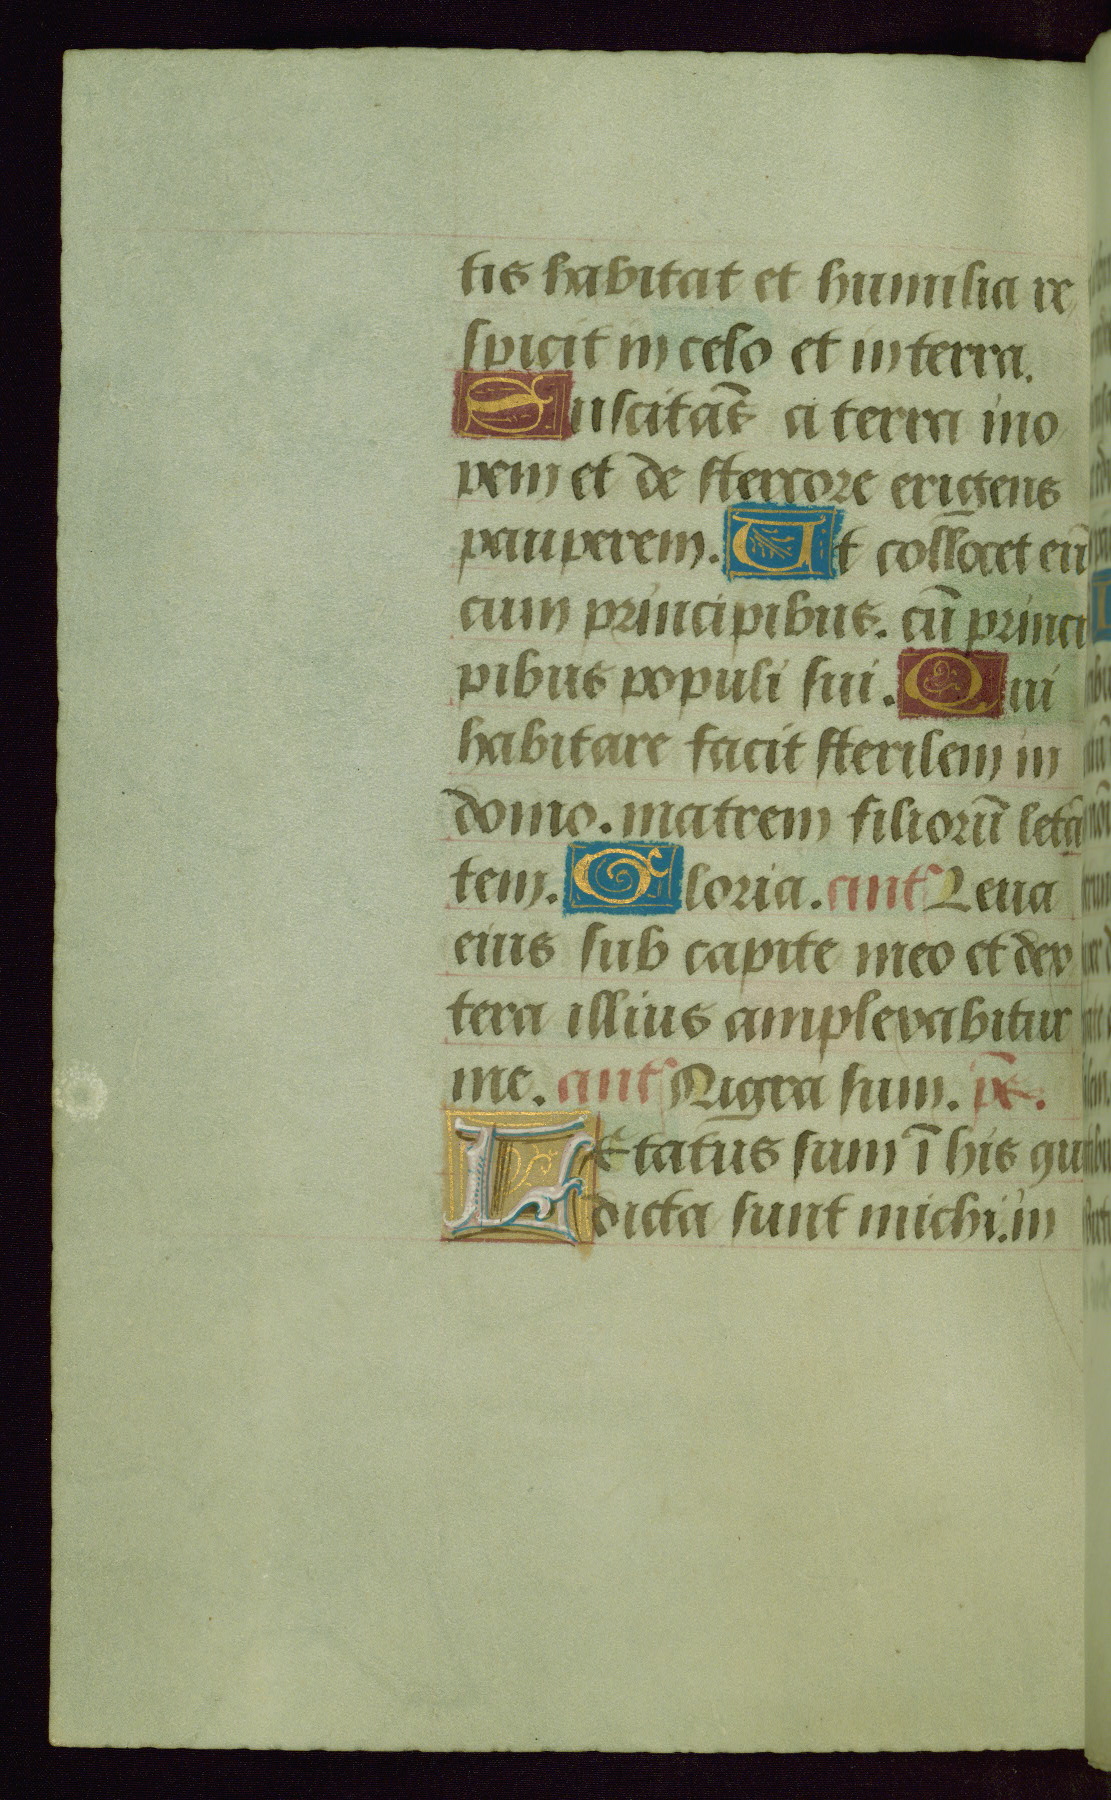 tis habitat et humilia re
spicit in celo et in terra.
Suscitãs a terra ino
pem et de stercore erigens
pauperem. Ut collocet eũ
cum principibus. cũ princi
pibus populi sui. Qui
habitare facit sterilem in
domo. matrem filiorũ letã
tem. Gloria. ant̃ Leua
eius sub capite meo et dex
tera illius amplexabitur
me. ant̃ Nigra sum. p̃s.
LEtatus sum ĩ his que
dicta sunt michi. in